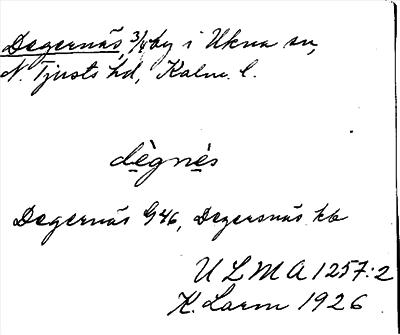 Degernäs, 3/4 by i Ukna sn,
N. Tjusts hd, Kalm. l.
dègnès
Degernäs G46, Degersnäs kb
ULMA 1257:2
K. Larm 1926